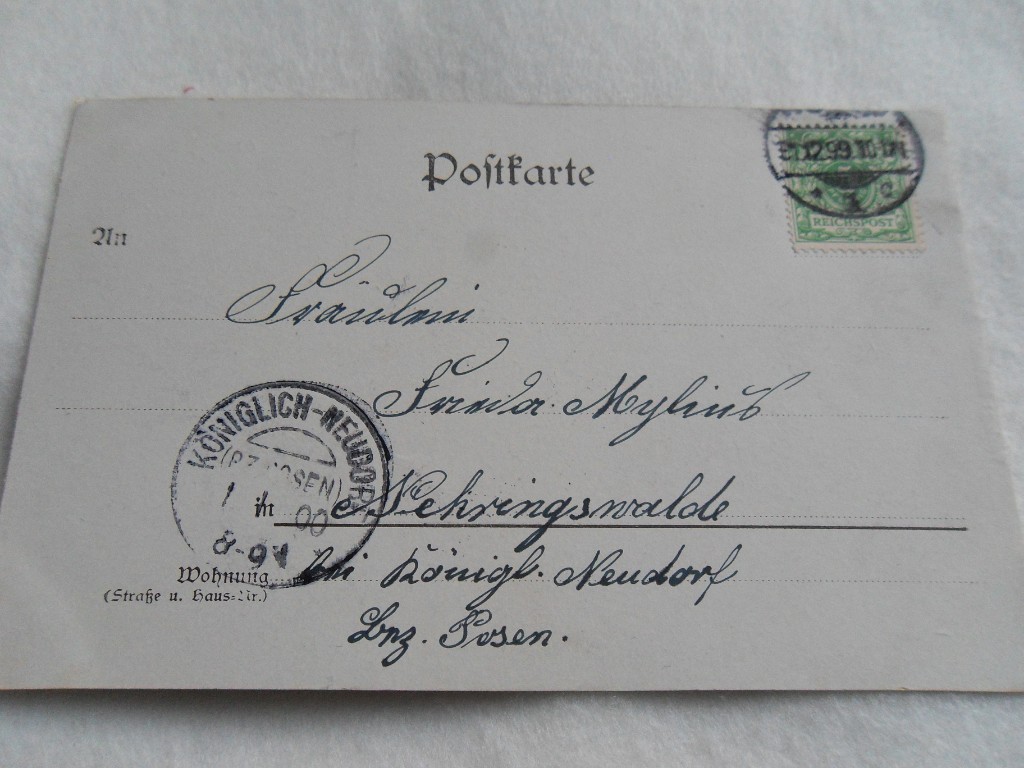 Postkarte
12.99.10
REICHSPOST
An
Fräulein
Frieda Mylius
KÖNIGLICH-NEUDORF
(BZ. POSEN)
1 00
8-9V
in Nehringswalde
Wohnung bei Königl. Neudorf
(Straße u. Haus-Nr.)
Bez. Posen.